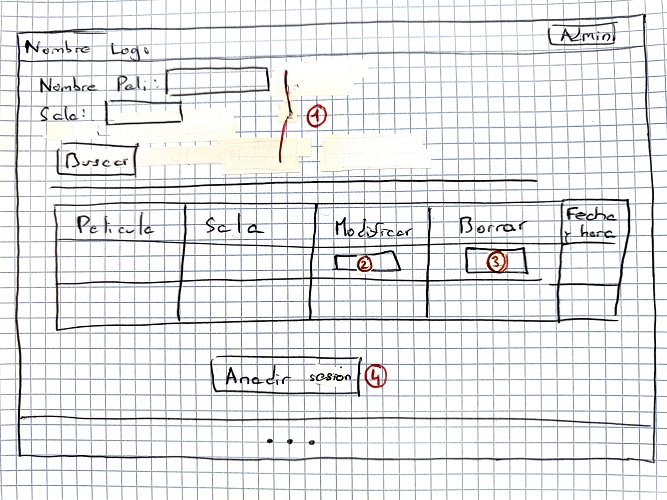 Nombre Logo
Admin
Nombre Peli:
Sala:
1
Buscar
Pelicula Sala Modificar Borrar Fecha y hora
2 3
Anadir sesión 4
...